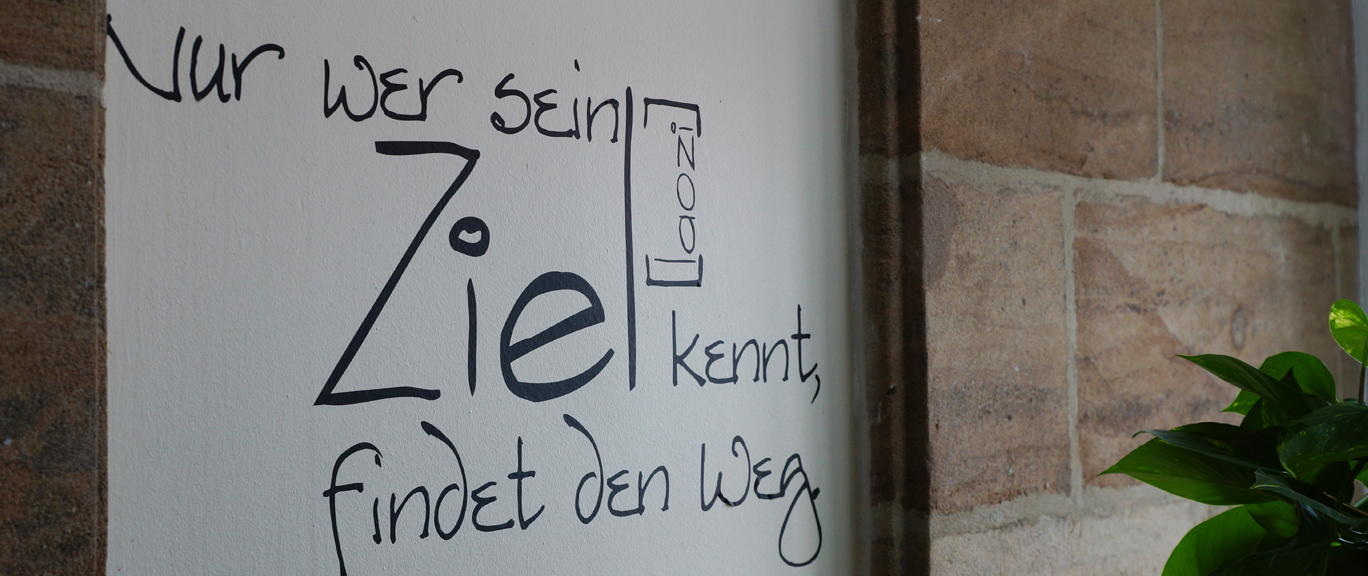 Nur wer sein
Ziel
[laozi]
kennt,
findet den Weg.